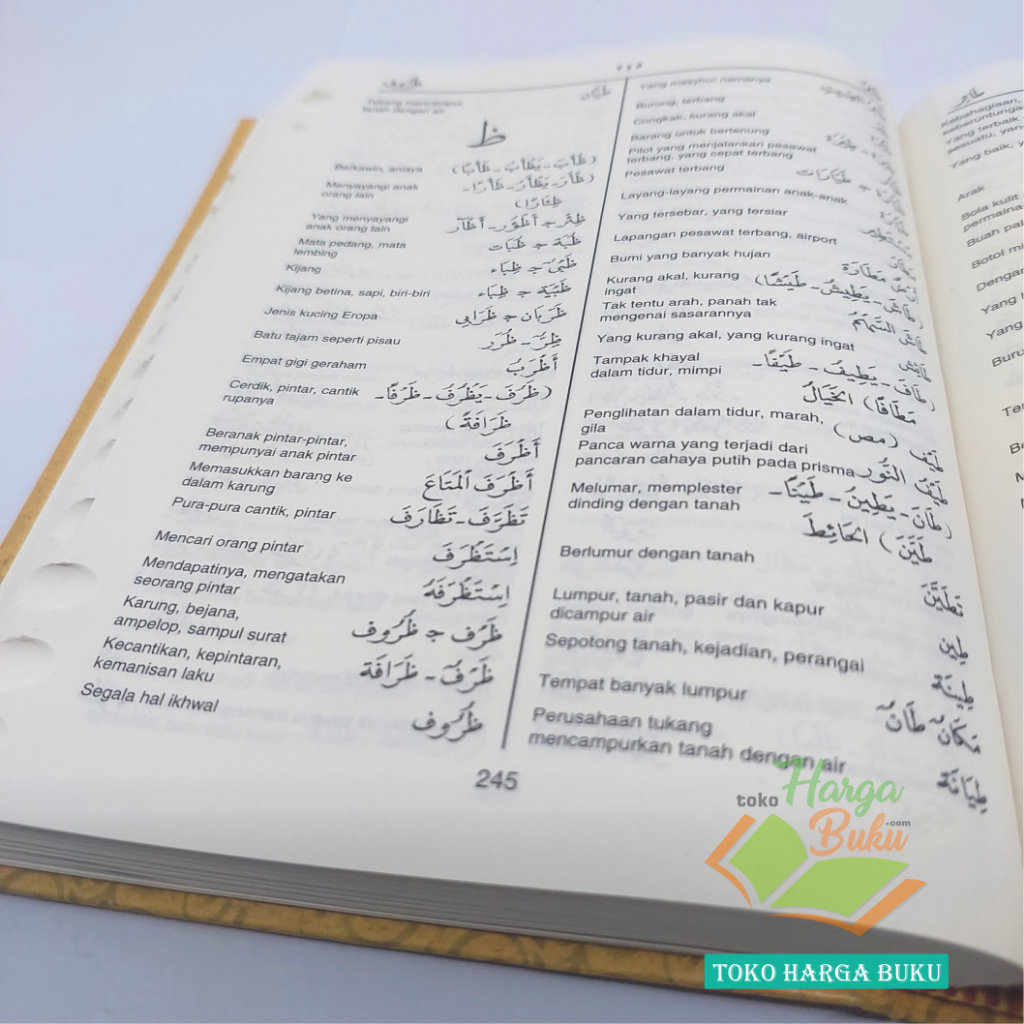 ظروف
٢٤٥
Tukang mencampur
tanah dengan air
طَيَّان
ظ
Berkawin, aniaya (ظَأَبَ - يَظْأَبُ - ظَأْبًا)
Menyayangi anak
orang lain (ظَأَرَ - يَظْأَرُ - ظَأْرًا -
ظِئَارًا)
Yang menyayangi
anak orang lain ظِئْر ج أَظْؤُر - أَظْآر
Mata pedang, mata
lembing ظُبَة ج ظُبَات
Kijang ظَبْيٌ ج ظِبَاء
Kijang betina, sapi, biri-biri ظَبْيَة ج ظِبَاء
Jenis kucing Eropa ظَرِبَان ج ظَرَابِي
Batu tajam seperti pisau ظِرّ - ظُرَر
Empat gigi geraham أَظْرَبُ
Cerdik, pintar, cantik
rupanya (ظَرُفَ - يَظْرُفُ - ظَرْفًا -
ظَرَافَةً)
Beranak pintar-pintar,
mempunyai anak pintar أَظْرَفَ
Memasukkan barang ke
dalam karung أَظْرَفَ الْمَتَاعَ
Pura-pura cantik, pintar تَظَرَّفَ - تَظَارَفَ
Mencari orang pintar اِسْتَظْرَفَ
Mendapatinya, mengatakan
seorang pintar اِسْتَظْرَفَهُ
Karung, bejana,
ampelop, sampul surat ظَرْف ج ظُرُوف
Kecantikan, kepintaran,
kemanisan laku ظَرْفٌ - ظَرَافَة
Segala hal ikhwal ظُرُوف
Yang masyhur namanya
Burung, terbang
Congkak, kurang akal
Barang untuk bertenung
Pilot yang menjalankan pesawat
terbang, yang cepat terbang
Pesawat terbang ج طَيَّارَات
Layang-layang permainan anak-anak
Yang tersebar, yang tersiar
Lapangan pesawat terbang, airport
Bumi yang banyak hujan
Kurang akal, kurang
ingat (طَاشَ - يَطِيشُ - طَيْشًا)
Tak tentu arah, panah tak
mengenai sasarannya طَاشَ السَّهْمُ
Yang kurang akal, yang kurang ingat طَائِش
Tampak khayal
dalam tidur, mimpi (طَافَ - يَطِيفُ - طَيْفًا -
مَطَافًا) الخَيَالُ
Penglihatan dalam tidur, marah,
gila طَيْف (مص)
Panca warna yang terjadi dari
pancaran cahaya putih pada prisma طَيْفُ النُّور
Melumar, memplester
dinding dengan tanah (طَانَ - يَطِينُ - طَيْنًا -
طَيَّنَ) الحَائِطَ
Berlumur dengan tanah تَطَيَّنَ
Lumpur, tanah, pasir dan kapur
dicampur air طِين
Sepotong tanah, kejadian, perangai طِينَة
Tempat banyak lumpur مَكَانٌ طَانٌ
Perusahaan tukang
mencampurkan tanah dengan air طِيَانَة
245
طائر
Kebahagiaan,
keberuntungan
Yang terbaik
sesuatu, yang
Yang baik, y
Arak
Bola kulit
permainan
Buah pal
Botol mi
Dengan
Yang
Yang
Buru
toko Harga
Buku .com
TOKO HARGA BUKU